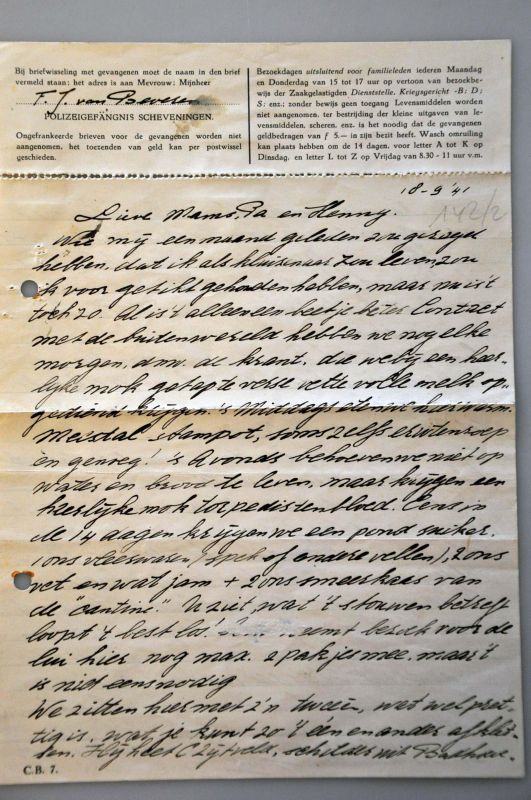 Bij briefwisseling met gevangenen moet de naam in den brief
vermeld staan: het adres is aan Mevrouw; Mijnheer
F. J. van Beveren
POLIZEIGEFÄNGNIS SCHEVENINGEN.
Ongefrankeerde brieven voor de gevangenen worden niet
aangenomen, het toezenden van geld kan per postwissel
geschieden.
Bezoekdagen uitsluitend voor familieleden iederen Maandag
en Donderdag van 15 tot 17 uur op vertoon van bezoekbe-
wijs der Zaakgelastigden Dienststelle, Kriegsgericht -B; D;
S: enz.; zonder bewijs geen toegang Levensmiddelen worden
niet aangenomen, ter bestrijding der kleine uitgaven van le-
vensmiddelen, scheren, enz. is het noodig dat de gevangenen
geldbedragen van f 5.- in zijn bezit heeft. Wasch omruiling
kan plaats hebben om de 14 dagen, voor letter A tot K op
Dinsdag, en letter L tot Z op Vrijdag van 8.30 - 11 uur v.m.
18-9-'41
142/2
Lieve Mams, Pa en Henny.
Wie mij een maand geleden zou gezegd
hebben, dat ik als kluisnaar zou leven, zou
ik voor getikt gehouden hebben, maar nu is 't
toch zo. Al is 't alleen een beetje beter Contact
met de buitenwereld hebben we nog elke
morgen, d.m.v. de krant, die we bij een heer-
lijke mok getapte verse vette volle melk op-
gediend krijgen. 's Middags eten we hier warm.
Meestal stampot, soms zelfs erwtensoep
en genoeg! 's Avonds behoeven we niet op
water en brood te leven, maar krijgen een
heerlijke mok torpedistenbloed. Eens in
de 14 dagen krijgen we een pond suiker,
1 ons vleeswaren (spek of andere vellen), 2 ons
vet en wat jam + 2 ons smeerkaas van
de "cantine." U ziet, wat 't stouwen betreft
loopt 't best los! neemt bezoek voor de
lui hier nog max. 2 pakjes mee, maar 't
is niet eens nodig
We zitten hier met z'n tweeën, wat wel pret-
tig is, want je kunt zo 't één en ander afklet-
sen. Hij heet C Zijtveld, schilder uit
C.B. 7.